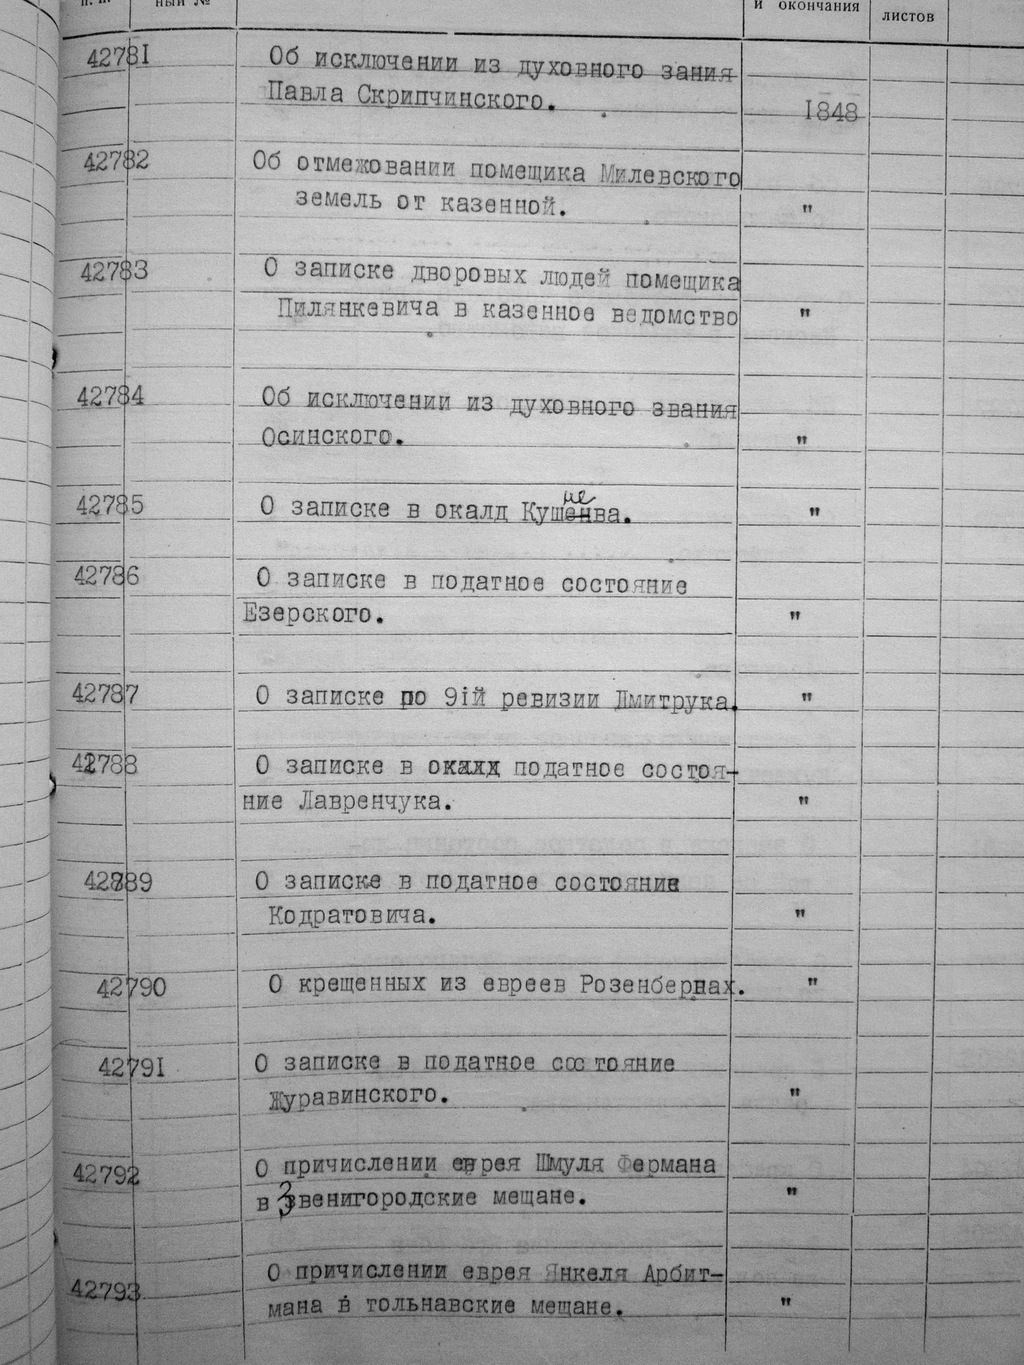 п. п. ный № и окончания листов
42781 Об исключении из духовного зания
Павла Скрипчинского. 1848
42782 Об отмежовании помещика Милевского
земель от казенной. "
42783 О записке дворовых людей помещика
Пилянкевича в казенное ведомство "
42784 Об исключении из духовного звания
Осинского. "
не
42785 О записке в окалд Кушенва. "
42786 О записке в податное состояние
Езерского. "
42787 О записке по 9ій ревизии Дмитрука. "
42788 О записке в окалд податное состоя-
ние Лавренчука. "
42789 О записке в податное состояние
Кодратовича. "
42790 О крещенных из евреев Розенбернах. "
42791 О записке в податное состояние
Журавинского. "
42792 О причислении еврея Шмуля Фермана
в Звенигородские мещане. "
42793 О причислении еврея Янкеля Арбит-
мана в тольнавские мещане. "